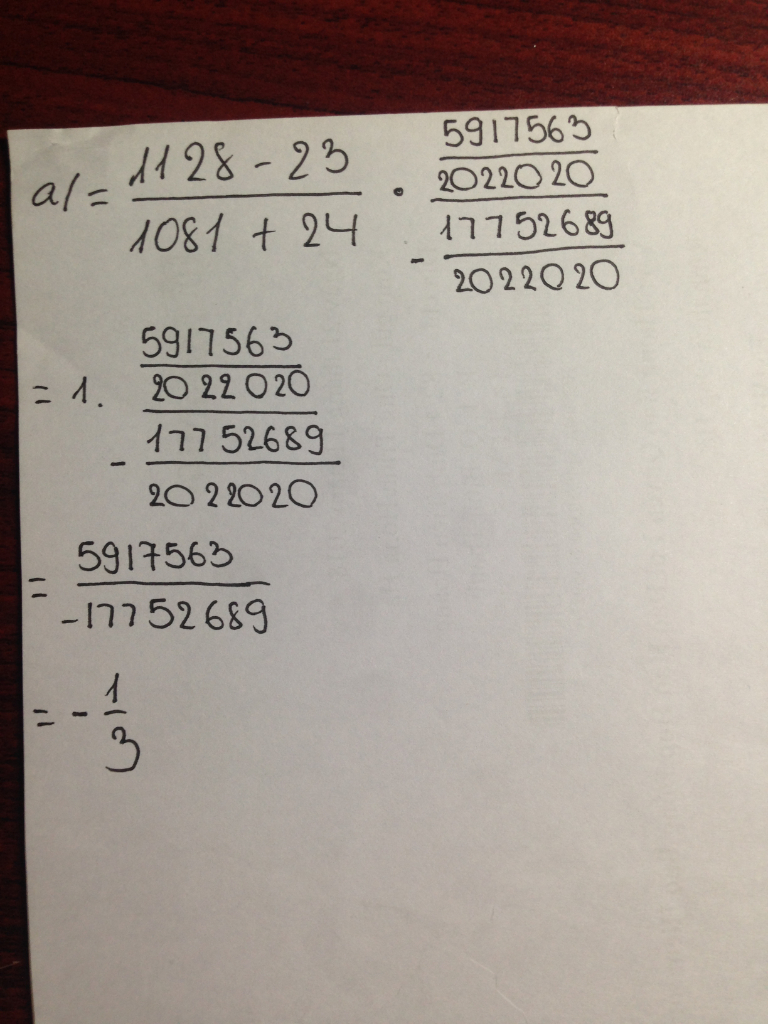 a/ = 1128 - 23 / 1081 + 24 · 5917563 / 2022020 / - 17752689 / 2022020
= 1. 5917563 / 2022020 / - 17752689 / 2022020
= 5917563 / -17752689
= - 1 / 3